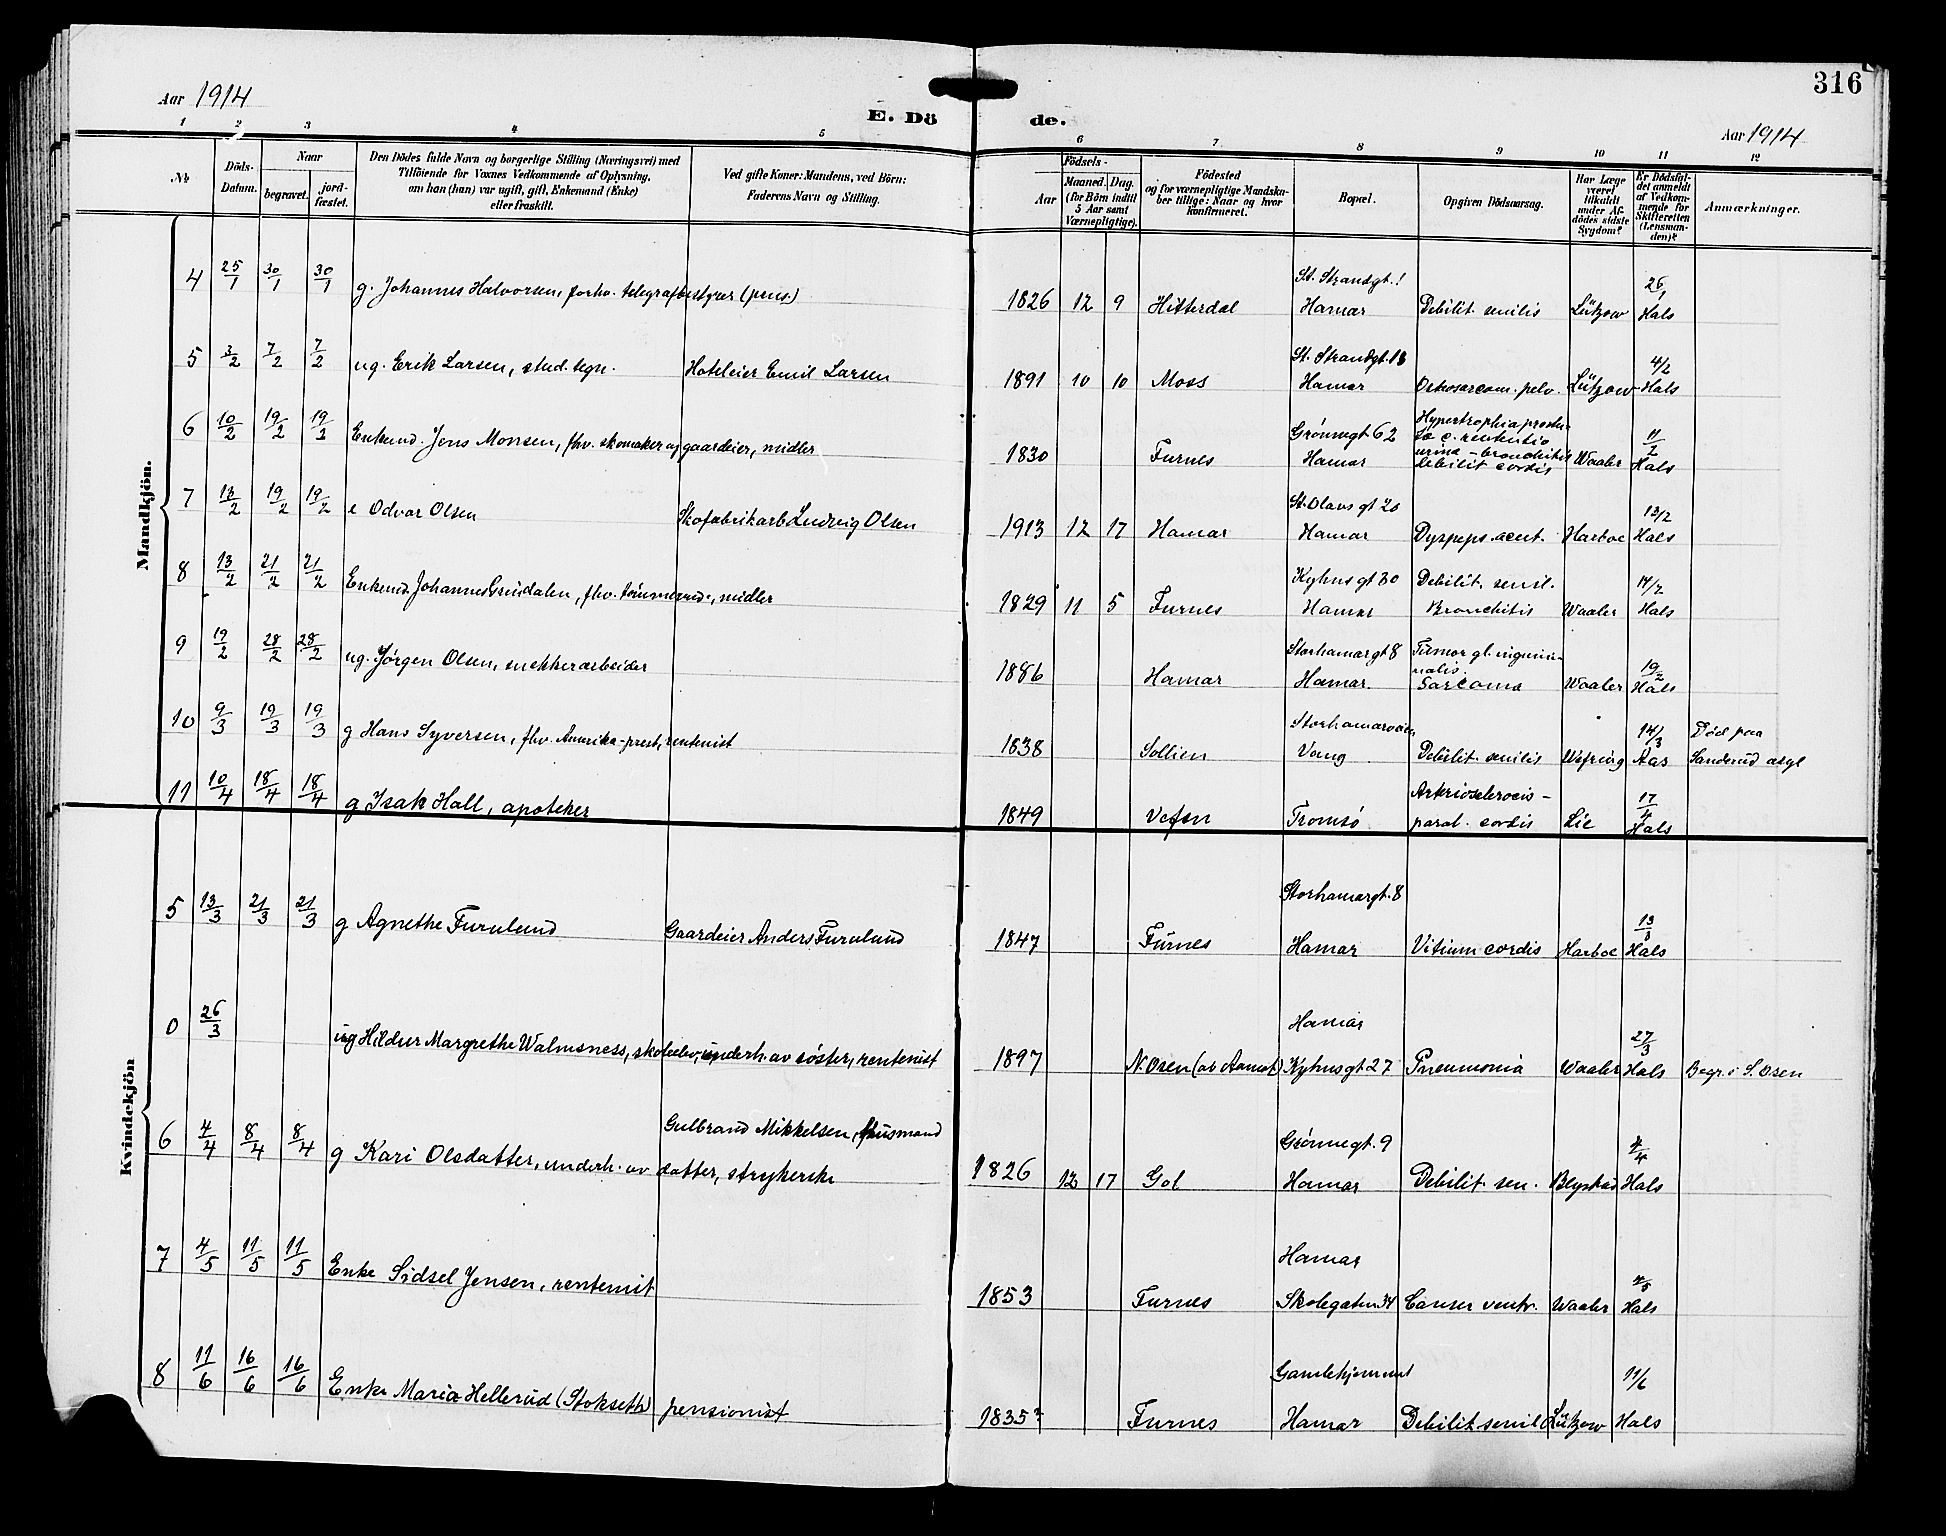 316
Aar 1914
E. Dö de.
Aar 1914
1 2 3 4 5 6 7 8 9 10 11 12
№
Döds-Datum.
Naar
begravet.
jord-fæstet.
Den Dödes fulde Navn og borgerlige Stilling (Næringsvei) med
Tilföiende for Voxnes Vedkommende af Oplysning,
om han (hun) var ugift, gift, Enkemand (Enke)
eller fraskilt.
Ved gifte Koner: Mandens, ved Börn:
Faderens Navn og Stilling.
Födsels-
Aar
Maaned. Dag.
(for Börn indtil
5 Aar samt
Værnepligtige).
Födested
og for værnepligtige Mandska-
ber tillige: Naar og hvor
konfirmeret.
Bopæl.
Opgiven Dödsaarsag.
Har Læge
været
tilkaldt
under Af-
dödes sidste
Sygdom?
Er Dödsfal-
det anmeldt
af Vedkom-
mende for
Skifteretten
(Lensman-
den)?
Anmærkninger.
Mandkjön.
4 25/1 30/1 30/1 g. Johannes Halvorsen, forhv. telegrafbestyrer (pens) 1826 12 9 Hitterdal St. Strandgt. 1 Hamar Debilit. senilis Lützow 26/1 Hals
5 3/2 7/2 7/2 ug. Erik Larsen, stud. tegn. Hoteleier Emil Larsen 1891 10 10 Moss St. Strandgt. 13 Hamar Osteosarcom. pelv. Lützow 4/2 Hals
6 10/2 19/2 19/3 Enkemd. Jens Monsen, fhv. skomaker og gaardeier, midler 1830 Furnes Grønnegt 62 Hamar Hypertrophia prosta-
tæ c. retentio
urina – bronchitis
Debilit cordis Waaler 11/2 Hals
7 13/2 19/2 19/2 e Odvar Olsen Skofabrikarb Ludvig Olsen 1913 12 17 Hamar St. Olavs gt 20 Hamar Dyspeps. acut. Harboe 13/2 Hals
8 13/2 21/2 21/2 Enkemd. Johannes Grindalen, fhv. tømmermd., midler 1829 11 5 Furnes Kyhns gt 30 Hamar Debilit. senil. Bronchitis Waaler 14/2 Hals
9 19/2 28/2 28/2 ug. Jørgen Olsen, snekkerarbeider 1886 Hamar Storhamargt 8 Hamar. Tumor gl. inguini-
nalis.
Sarcoma Waaler 19/2 Hals
10 9/3 19/3 19/3 g Hans Syversen, fhv. Amerika-prest, rentenist 1838 Sollien Storhamarveien Vang Debilit. senilis Wefring 14/3 Aas Død paa Sanderud asyl
11 10/4 18/4 18/4 g Isak Hall, apoteker 1849 Vefsn Tromsø Arteriosclerocis –
paral. cordis Lie 17/4 Hals
Kvindekjön
5 13/3 21/3 21/3 g Agnethe Furulund Gaardeier Anders Furulund 1847 Furnes Storhamargt. 8 Hamar Vitium cordis Harboe 13/3 Hals
0 26/3 ug Hildur Margrethe Walmsness, skoleelev, underh. av søster, rentenist 1897 N. Osen (ob Aamot) Hamar Kyhnsgt 27 Pneumonia Waaler 27/3 Hals Begr. i S. Osen
6 4/4 8/4 8/4 g Kari Olsdatter, underh. av datter, strykerske Gulbrand Mikkelsen, husmand 1826 12 17 Gol Grønnegt. 9 Hamar Debilit. sen. Blystad 4/4 Hals
7 4/5 11/5 11/5 Enke Sidsel Jensen, rentenist 1853 Furnes Hamar Skolegaten 34 Cancer ventr. Waaler 4/5 Hals
8 11/6 16/6 16/6 Enke Maria Hellerud (Stokseth) pensionist 1835? Furnes Gamlehjemmet Hamar Debilit. senil Lützow 11/6 Hals